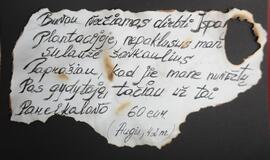 Buvau vežiamas dirbti Ispa
Plantacijoje, nepaklusus man
sulaužė šonkaulius
Paprašiau, kad jie mane nuvežtų
Pas gydytoją, tačiau už tai
Pareikalavo 60 eur